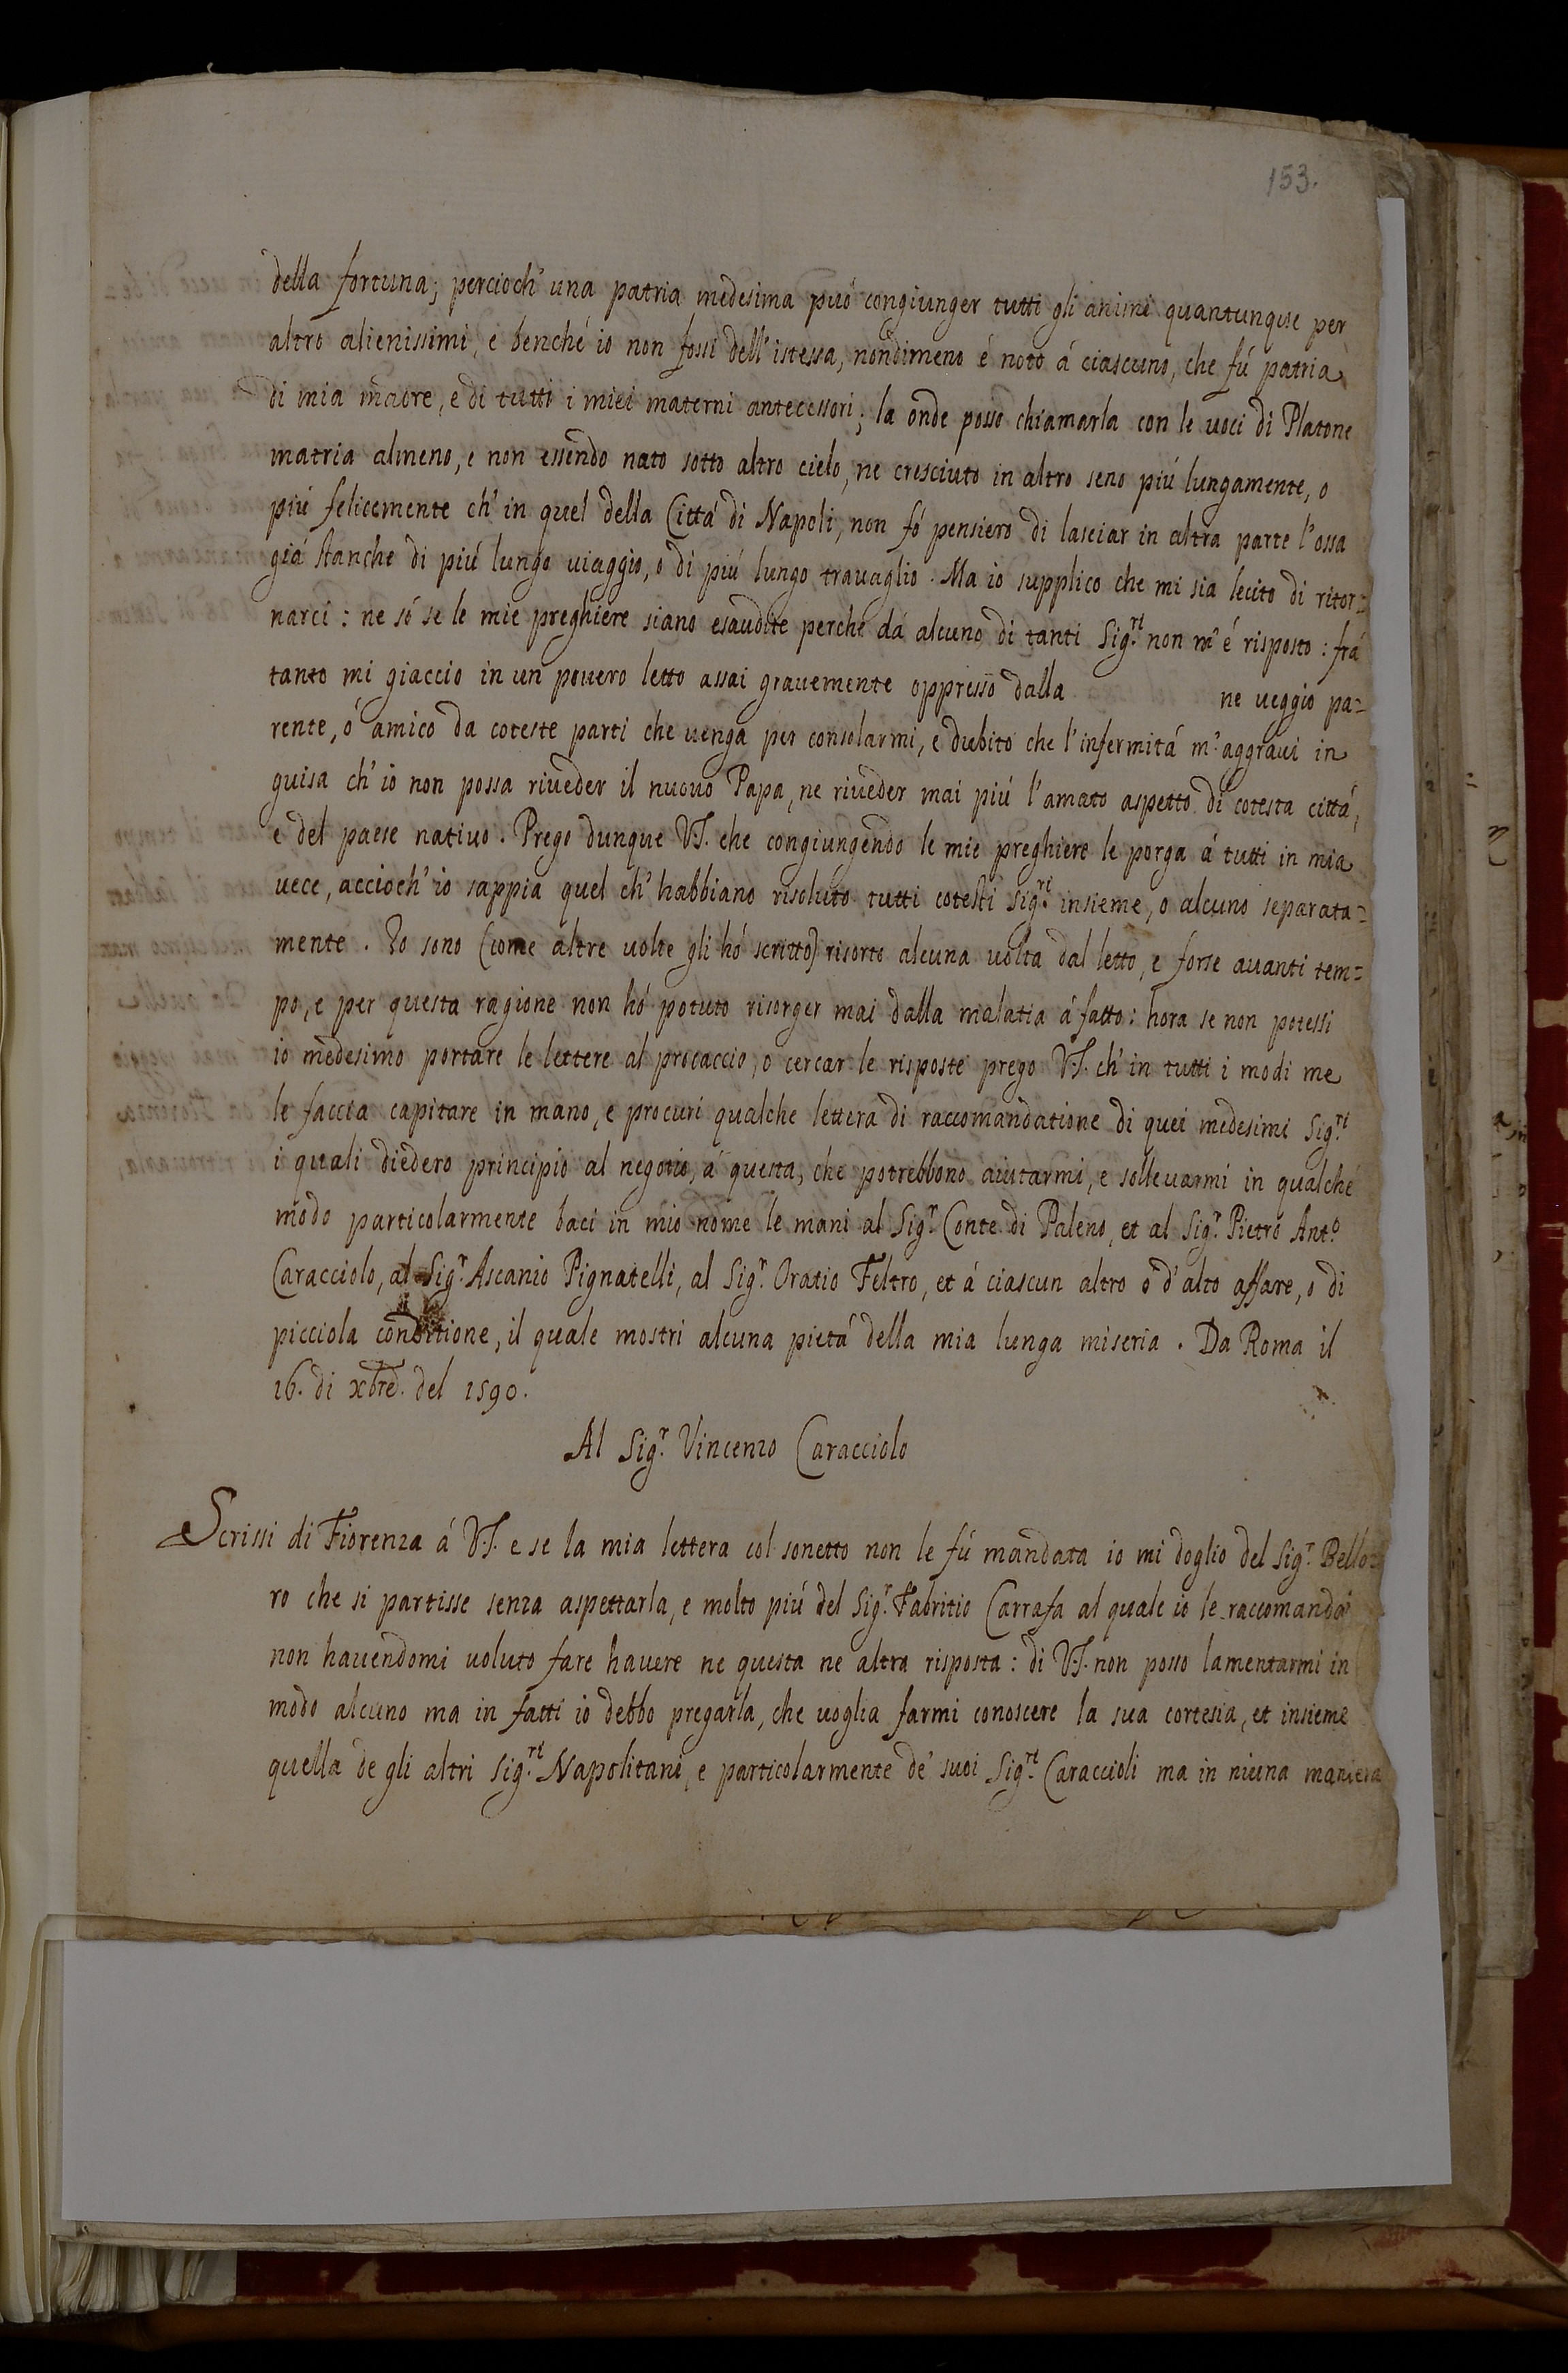 153.
della fortuna; percioch' una patria medesima può congiunger tutti gli animi quantunque per
altro alienissimi, e benché io non fossi dell'istessa, nondimeno é noto á ciascuno, che fú patria
di mia madre, e di tutti i miei materni antecessori; la onde posso chiamarla con le uoci di Platone
matria almeno, e non essendo nato sotto altro cielo, ne cresciuto in altro seno piú lungamente, o
piú felicemente ch' in quel della Cittá di Napoli, non fó pensiero di lasciar in altra parte l'ossa
giá stanche di piú lungo uiaggio, o di piú lungo trauaglio. Ma io supplico che mi sia lecito di ritor=
narci: ne só se le mie preghiere siano esaudite perche dá alcuno di tanti Sig.ri non m'é risposto: frá
tanto mi giaccio in un pouero letto assai grauemente oppresso dalla ne ueggio pa=
rente, ó amico da coteste parti che uenga per consolarmi, e dubito che l'infermitá m'aggraui in
guisa ch' io non possa riueder il nuouo Papa, ne riueder mai piú l'amato aspetto di cotesta cittá,
e del paese natiuo. Prego dunque V.S. che congiungendo le mie preghiere le porga á tutti in mia
uece, accioch' io sappia quel ch' habbiano risoluto tutti cotesti Sig.ri insieme, o alcuno separata=
mente. Io sono (come altre uolte gli hó scritto) risorto alcuna uolta dal letto, e forse auanti tem=
po, e per questa ragione non hó potuto risorger mai dalla malatia á fatto: hora se non potessi
io medesimo portare le lettere al procaccio, o cercar le risposte prego V.S. ch' in tutti i modi me
le faccia capitare in mano, e procuri qualche lettera di raccomandatione di quei medesimi Sig.ri
i quali diedero principio al negotio, á questa, che potrebbono aiutarmi, e solleuarmi in qualche
modo particolarmente baci in mio nome le mani al Sig.r Conte di Paleno, et al Sig.r Pietro Ant.o
Caracciolo, al Sig.r Ascanio Pignatelli, al Sig.r Oratio Feltro, et á ciascun altro o d'alto affare, o di
picciola conditione, il quale mostri alcuna pietá della mia lunga miseria. Da Roma il
16. di xbre. del 1590.
Al Sig.r Vincenzo Caracciolo
Scrissi di Fiorenza á V.S. e se la mia lettera col sonetto non le fú mandata io mi doglio del Sig.r Bello=
ro che si partisse senza aspettarla, e molto piú del Sig.r Fabritio Carrafa al quale io le raccomandai
non hauendomi uoluto fare hauere ne questa ne altra risposta: di V.S. non posso lamentarmi in
modo alcuno ma in fatti io debbo pregarla, che uoglia farmi conoscere la sua cortesia, et insieme
quella de gli altri Sig.ri Napolitani, e particolarmente de' suoi Sig.ri Caraccioli ma in niuna maniera